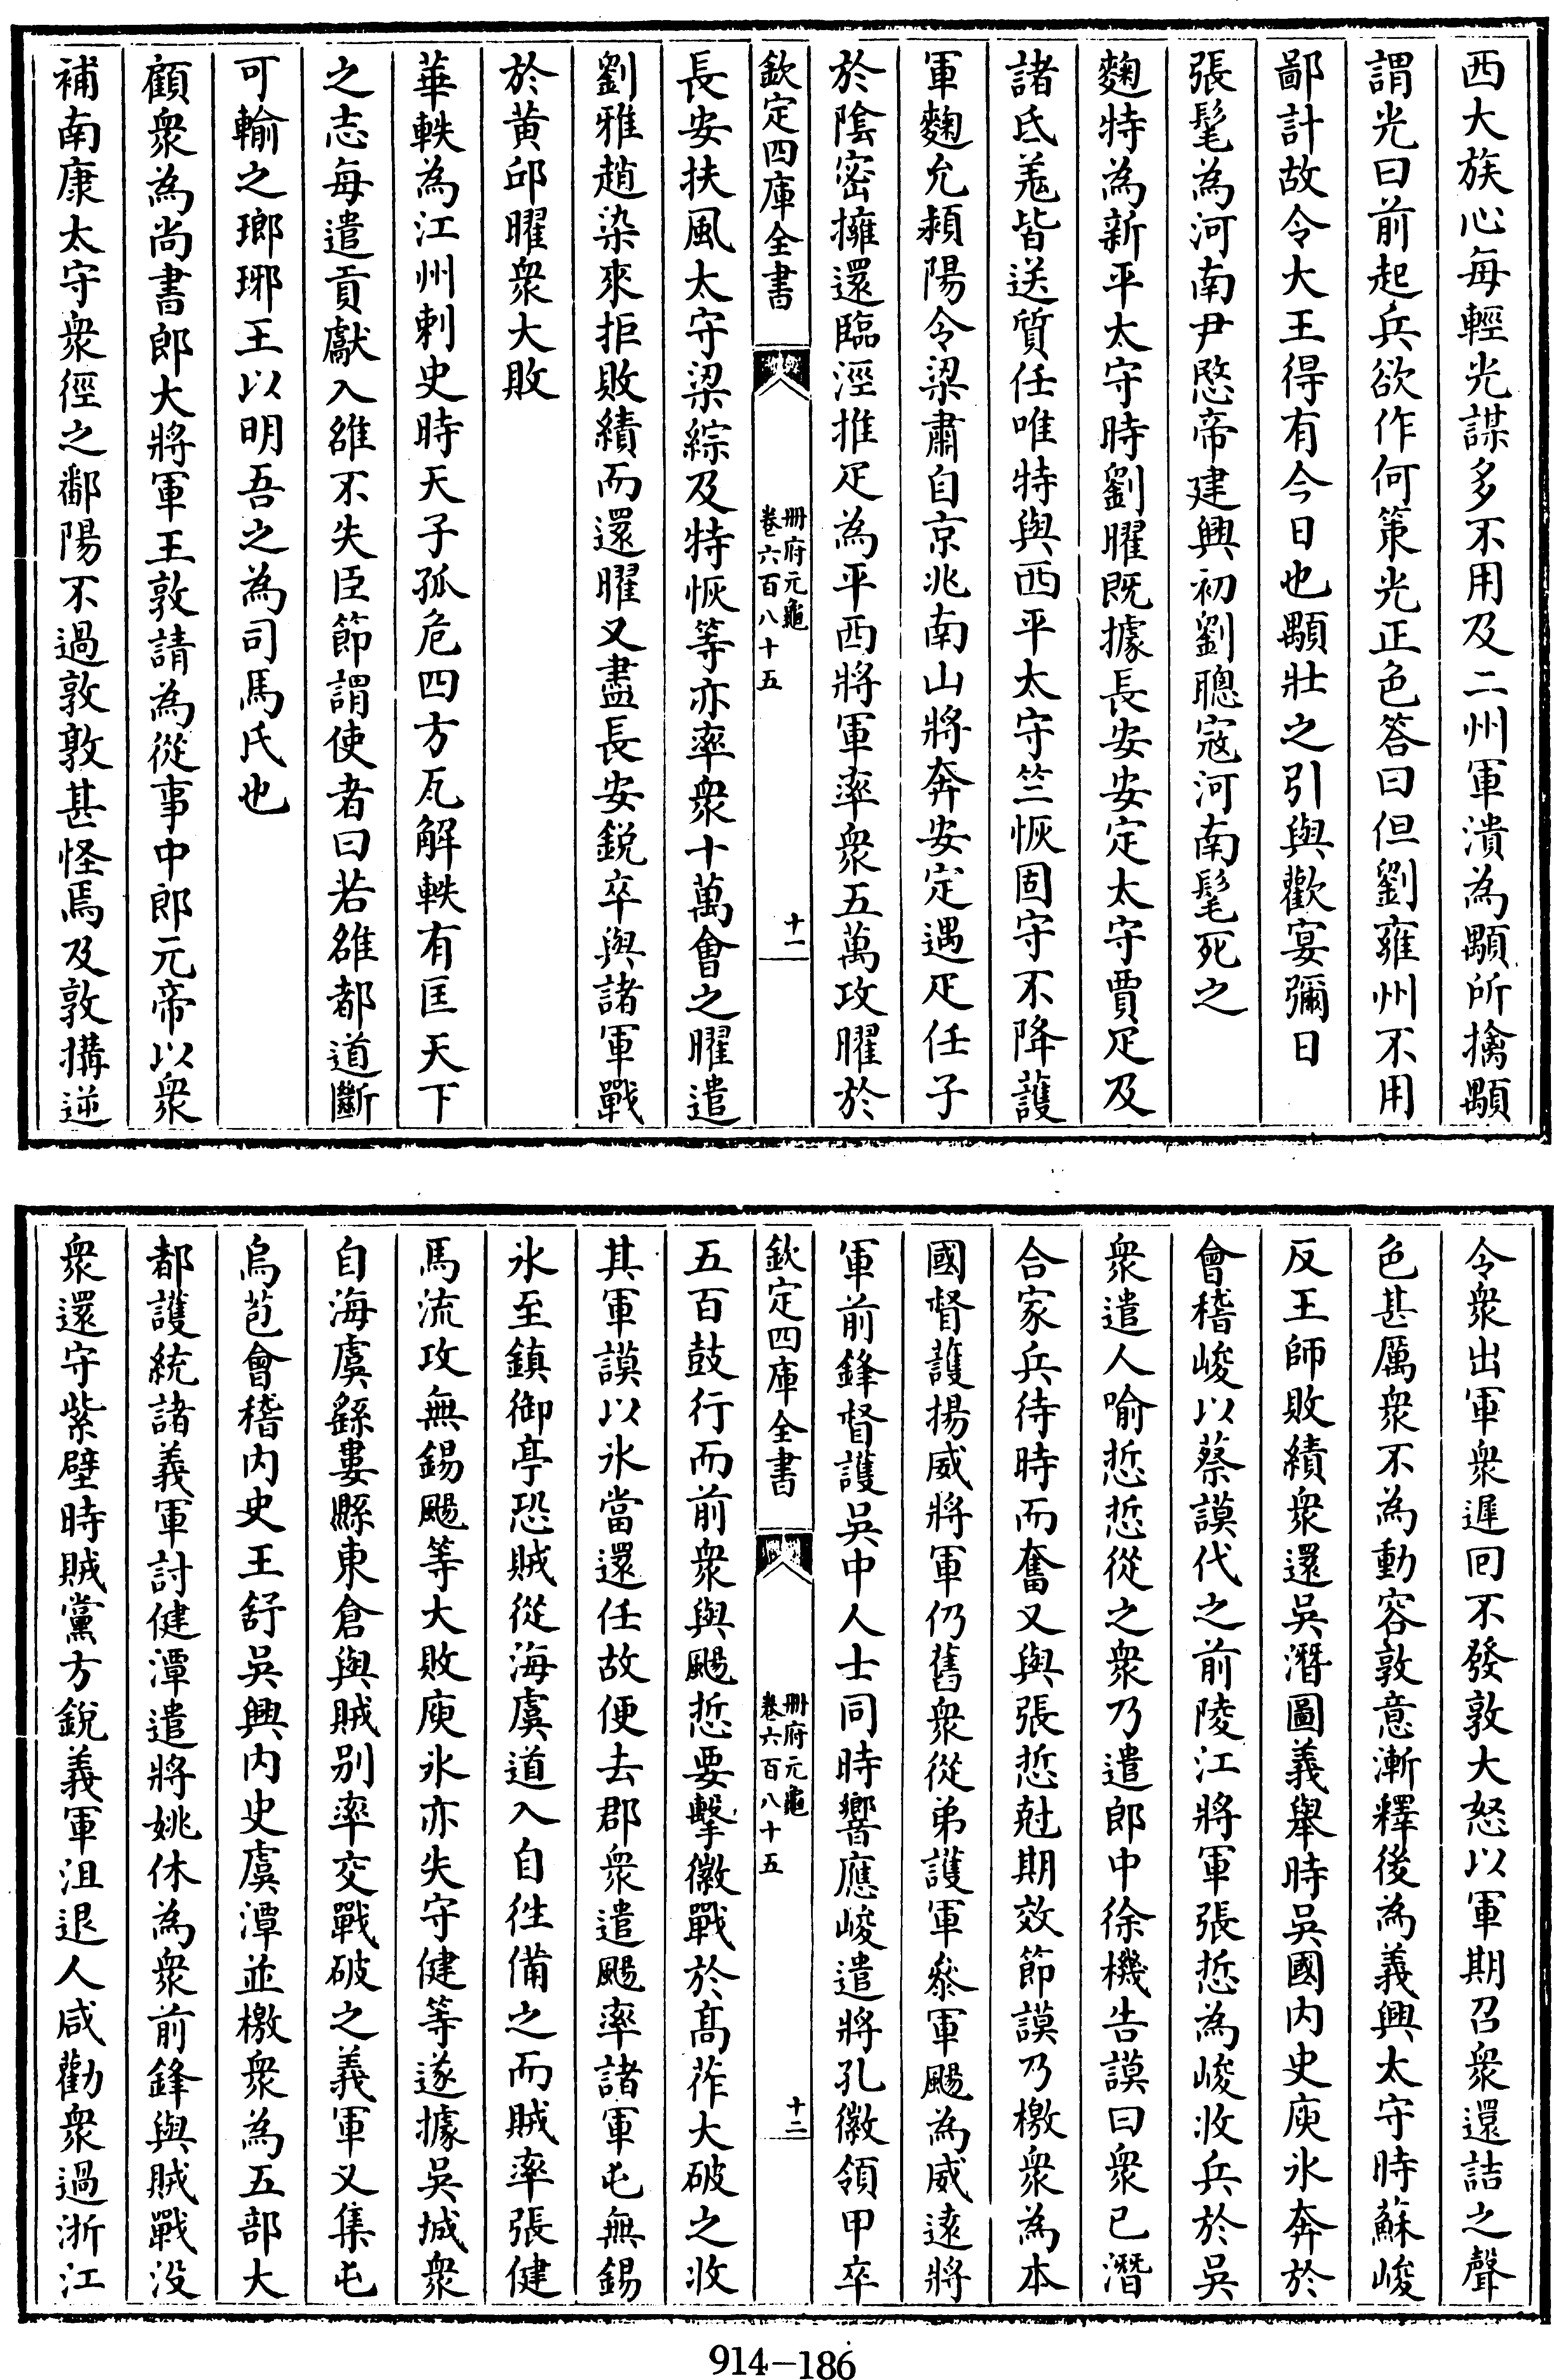 西大族心每輕光謀多不用及二州軍潰為顒所擒顒
謂光曰前起兵欲作何策光正色答曰但劉雍州不用
鄙計故令大王得有今日也顒壯之引與歡宴彌日
張髦為河南尹愍帝建興初劉聰寇河南髦死之
麴特為新平太守時劉曜既據長安安定太守賈疋及
諸氐羗皆送質任唯特與西平太守竺恢固守不降護
軍麴允頻陽令梁肅自京兆南山將奔安定遇疋任子
於陰密擁還臨涇推疋為平西將軍率衆五萬攻曜於
欽定四庫全書
冊府元龜
卷六百八十五
十一
長安扶風太守梁綜及特恢等亦率衆十萬會之曜遣
劉雅趙染來拒敗績而還曜又盡長安鋭卒與諸軍戰
於黄邱曜衆大敗
華軼為江州刺史時天子孤危四方瓦解軼有匡天下
之志每遣貢獻入雒不失臣節謂使者曰若雒都道斷
可輸之瑯琊王以明吾之為司馬氏也
顧衆為尚書郎大將軍王敦請為從事中郎元帝以衆
補南康太守衆徑之鄱陽不過敦敦甚怪焉及敦搆逆
令衆出軍衆遲回不發敦大怒以軍期召衆還詰之聲
色甚厲衆不為動容敦意漸釋後為義興太守時蘇峻
反王師敗績衆還吳潛圖義舉時吳國内史庾氷奔於
會稽峻以蔡謨代之前陵江將軍張悊為峻收兵於吳
衆遣人喻悊悊從之衆乃遣郎中徐機告謨曰衆已潛
合家兵待時而奮又與張悊尅期效節謨乃檄衆為本
國督護揚威將軍仍舊衆從弟護軍叅軍颺為威逺將
軍前鋒督護吳中人士同時響應峻遣將孔徽領甲卒
欽定四庫全書
冊府元龜
卷六百八十五
十二
五百鼓行而前衆與颺悊要擊徽戰於髙莋大破之收
其軍謨以氷當還任故便去郡衆遣颺率諸軍屯無錫
氷至鎮御亭恐賊從海虞道入自徃備之而賊率張健
馬流攻無錫颺等大敗庾氷亦失守健等遂據吳城衆
自海虞繇婁縣東倉與賊别率交戰破之義軍又集屯
烏苞會稽内史王舒吳興内史虞潭並檄衆為五部大
都護統諸義軍討健潭遣將姚休為衆前鋒與賊戰没
衆還守紫壁時賊黨方銳義軍沮退人咸勸衆過浙江
914-186